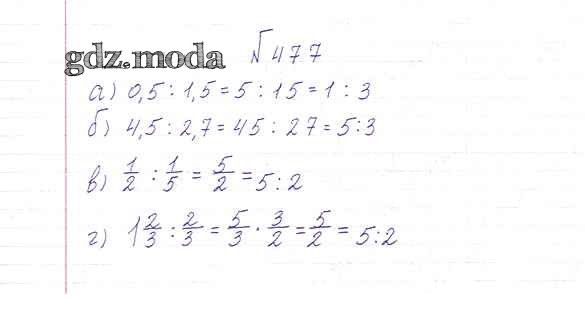 № 477
gdz.moda
а) 0,5 : 1,5 = 5 : 15 = 1 : 3
б) 4,5 : 2,7 = 45 : 27 = 5 : 3
в) 1/2 : 1/5 = 5/2 = 5 : 2
г) 1 2/3 : 2/3 = 5/3 · 3/2 = 5/2 = 5 : 2